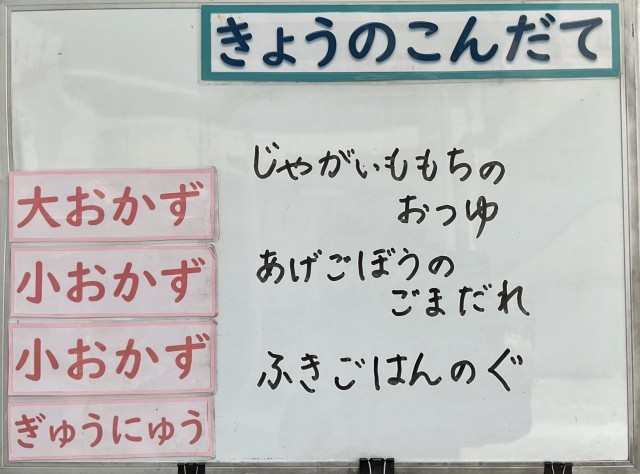 きょうのこんだて
大おかず
じゃがいももちの
おつゆ
小おかず
あげごぼうの
ごまだれ
小おかず
ふきごはんのぐ
ぎゅうにゅう